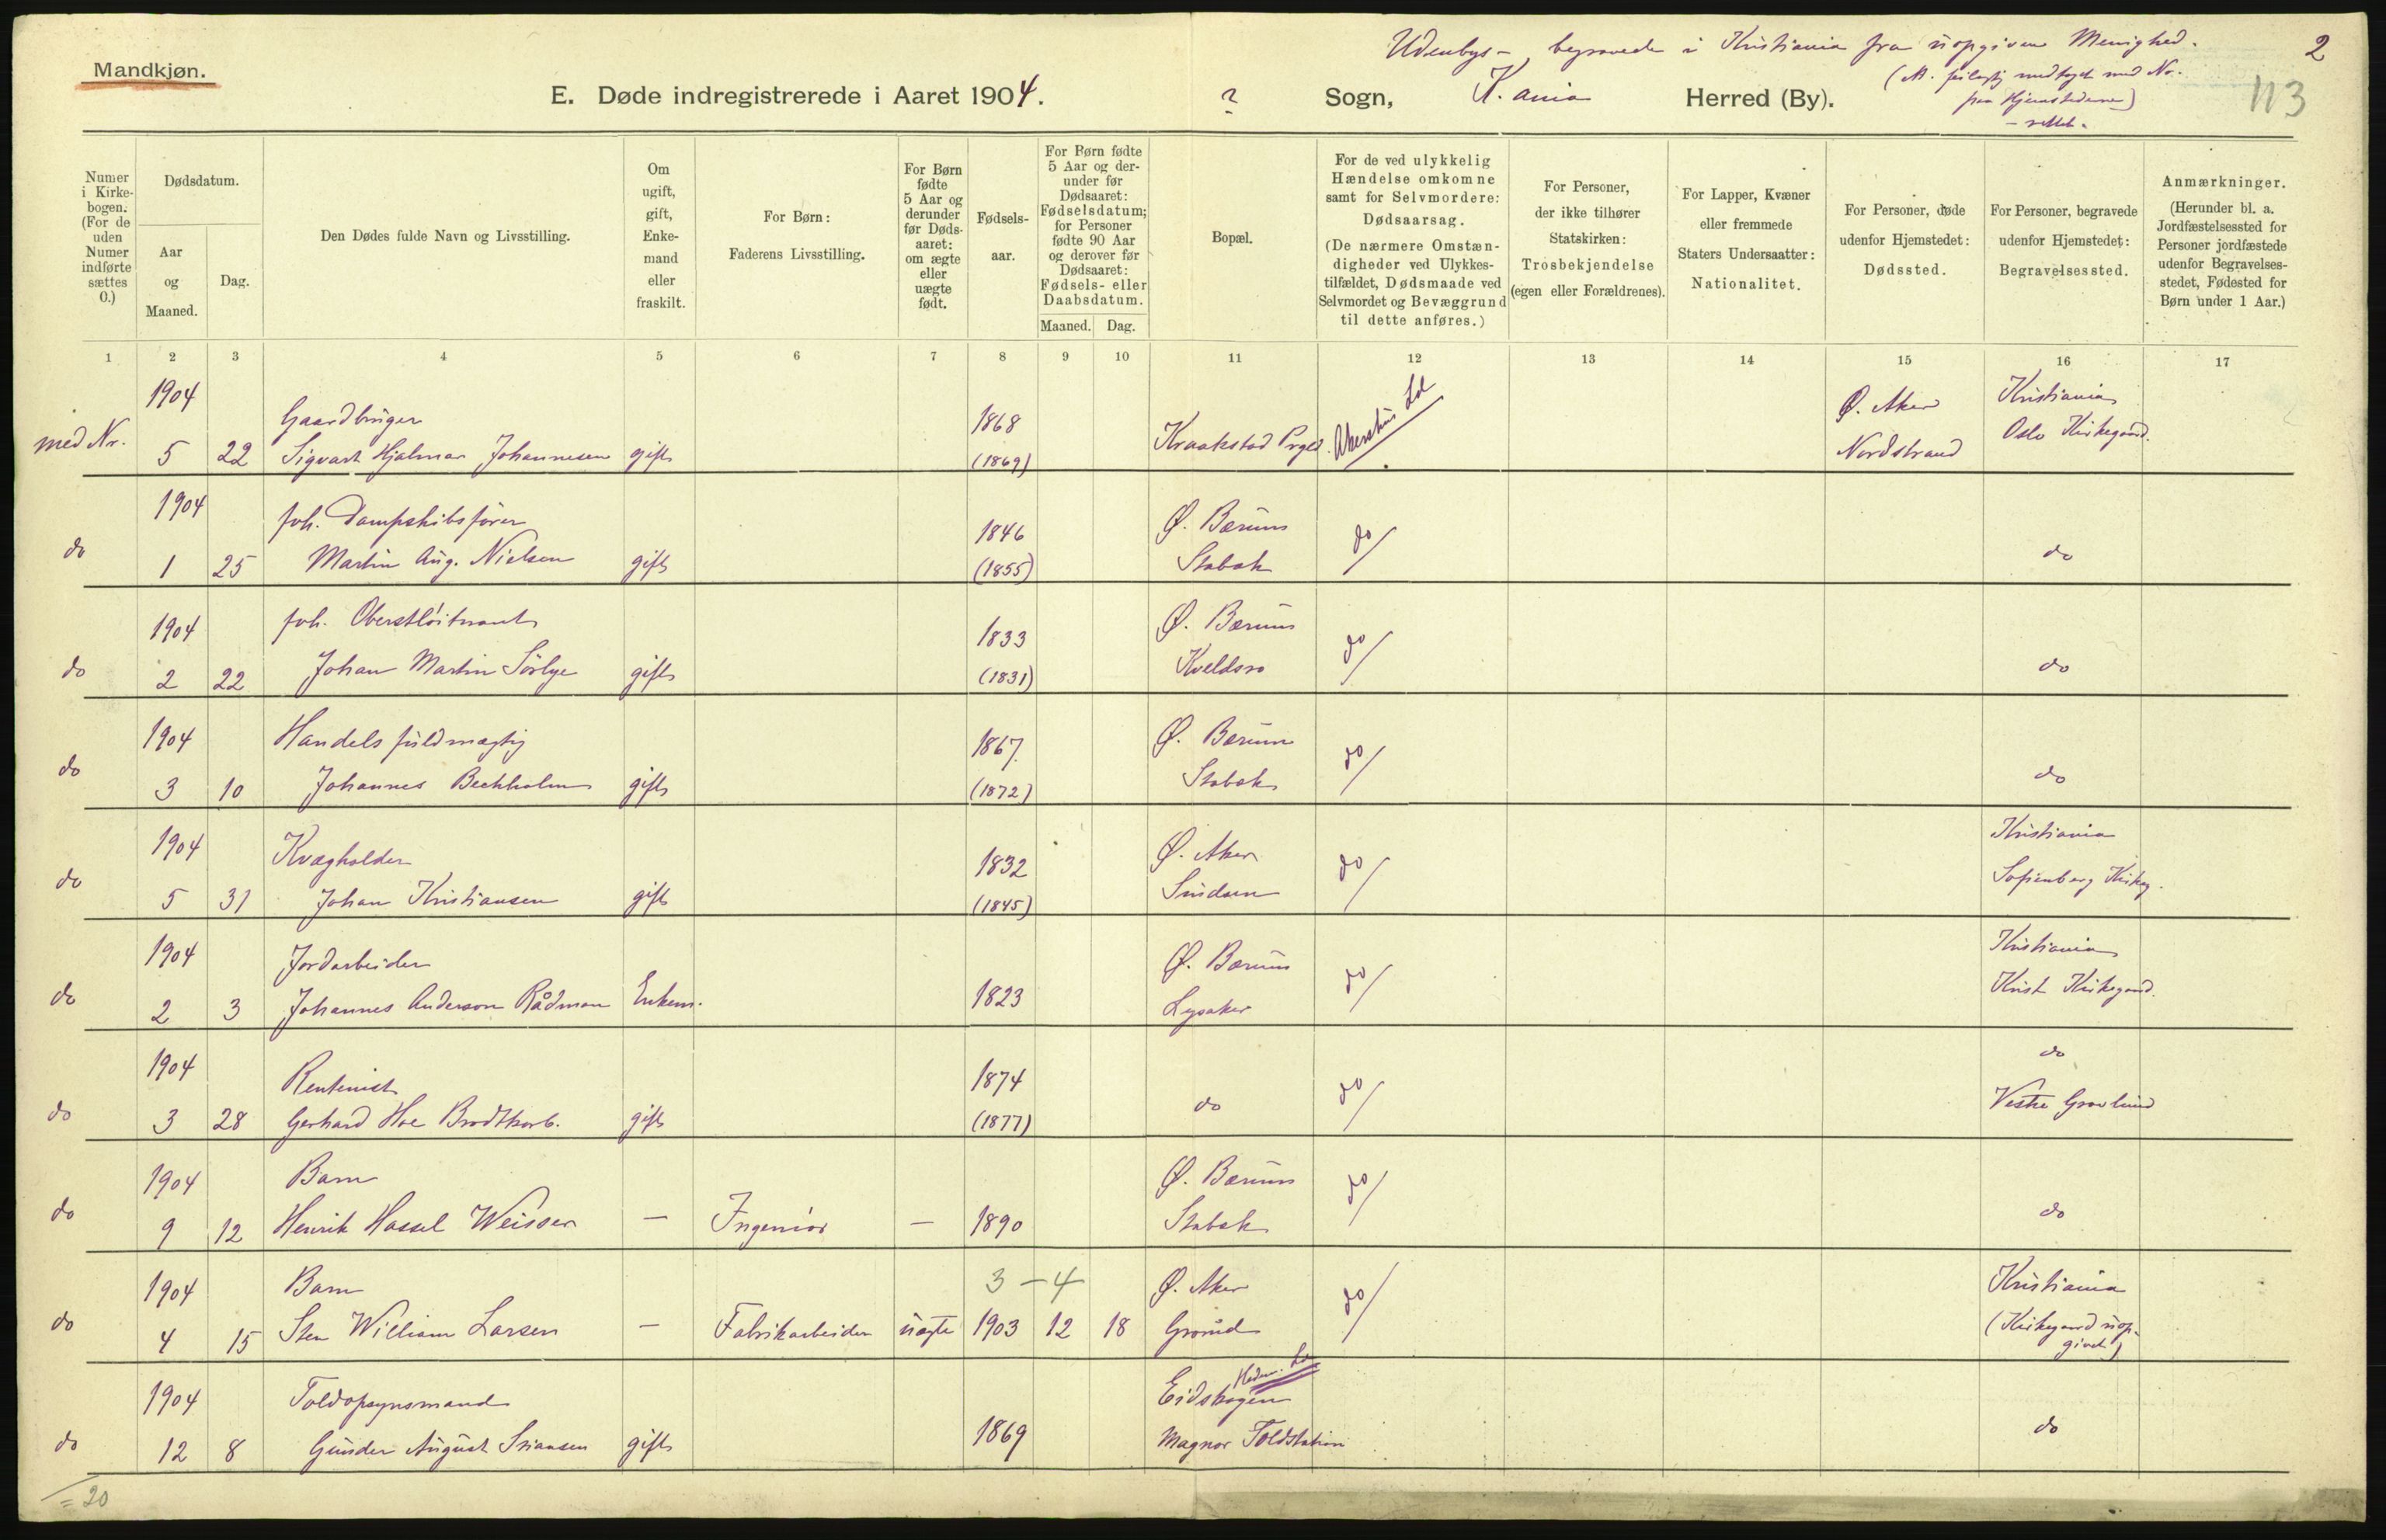 Mandkjøn.
Udenbys - begravede i Kristiania fra uopgiven Menighed.
2
E. Døde indregistrerede i Aaret 1904.
? Sogn, K.ania Herred (By).
113
Numer i Kirkebogen. (For de uden Numer indførte sættes 0.)
Dødsdatum.
Aar og Maaned.
Dag.
Den Dødes fulde Navn og Livsstilling.
Om ugift, gift, Enkemand eller fraskilt.
For Børn: Faderens Livsstilling.
For Børn fødte 5 Aar og derunder før Dødsaaret: om ægte eller uægte født.
Fødselsaar.
For Børn fødte 5 Aar og derunder før Dødsaaret: Fødselsdatum; for Personer fødte 90 Aar og derover før Dødsaaret: Fødsels- eller Daabsdatum.
Maaned. Dag.
Bopæl.
For de ved ulykkelig Hændelse omkomne samt for Selvmordere: Dødsaarsag. (De nærmere Omstændigheder ved Ulykkestilfældet, Dødsmaade ved Selvmordet og Bevæggrund til dette anføres.)
For Personer, der ikke tilhører Statskirken: Trosbekjendelse (egen eller Forældrenes).
For Lapper, Kvæner eller fremmede Staters Undersaatter: Nationalitet.
For Personer, døde udenfor Hjemstedet: Dødssted.
For Personer, begravede udenfor Hjemstedet: Begravelsessted.
Anmærkninger. (Herunder bl. a. Jordfæstelsessted for Personer jordfæstede udenfor Begravelsesstedet, Fødested for Børn under 1 Aar.)
1 2 3 4 5 6 7 8 9 10 11 12 13 14 15 16 17
1904 Gaardbruger 1868 Ø. Aker Kristiania
med Nr. 5 22 Sigvart Hjalmar Johannesen gift (1869) Kraakstad Prgld. Akershus Nordstrand Oslo Kirkegaard.
1904 fvh. Dampskibsfører 1846 Ø. Bærum
do 1 25 Martin Aug. Nielsen gift (1855) Stabæk do do
1904 fvh. Oberstløitnant 1833 Ø. Bærum
do 2 22 Johan Martin Sørlye gift (1831) Kveldsro do do
1904 Handelsfuldmægtig 1867 Ø. Bærum
do 3 10 Johannes Beckholm gift (1872) Stabæk do do
1904 Kvægholder 1832 Ø. Aker Kristiania
do 5 31 Johan Kristiansen gift (1845) do Sofienberg Kirkeg.
1904 Jordarbeider Ø. Bærum Kristiania
do 2 3 Johannes Anderson Rådman Enkem. 1823 Lysaker do Krist Kirkegaard.
1904 Rentenist 1874 do
do 3 28 Gerhard Hoe Brodtkorb. gift (1877) do do Vestre Gravlund
1904 Barn Ø. Bærum
do 9 12 Henrik Hassel Weisser — Ingeniør — 1890 Stabæk do do
1904 Barn 3 - 4 Ø. Aker Kristiania
do 4 15 Sten William Larsen — Fabrikarbeider uægte 1903 12 18 Grorud do (Kirkegaard uopgivet)
1904 Toldopsynsmand Eidskogen
do 12 8 Gunder August gift 1869 Magnor Toldstation do
= 20